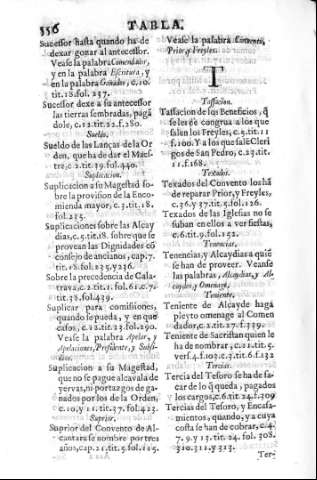 356 TABLA.
Sucessor hasta quando ha de
dexar gozar al antecessor.
Vease la palabra Comendador,
y en la palabra Escritura, y
en la palabra Ganados, c. 10.
tit. 18. fol. 257.
Sucessor dexe a su antecessor
las tierras sembradas, pagã
dole, c. 12. tit. 22. f. 280.
Sueldo.
Sueldo de las Lanças de la Or
den, que ha de dar el Maes-
tre, c. 2. tit. 29. fol. 440.
Suplicacion.
Suplicacion a su Magestad so-
bre la provision de la Enco-
mienda mayor, c. 3. tit. 18.
fol. 235.
Suplicaciones sobre las Alcay
dias, c. 5. tit. 18. sobre que se
provean las Dignidades cõ
consejo de ancianos, cap. 7.
tit. 18. fol. 235. y 236.
Sobre la precedencia de Cala-
trava, c. 2. tit. 1. fol. 61. c. 7.
tit. 38. fol. 439.
Suplicar para comissiones,
quando se pueda, y en que
casos, c. 12. tit. 23. fol. 290.
Vease la palabra Apelar, y
Apelaciones, Presidente, y Subsi-
dio.
Suplicacion a su Magestad,
que no se pague alcavala de
yervas, ni portazgos de ga-
nados por los de la Orden,
c. 10. y 11. tit. 37. fol. 423.
Suprior.
Suprior del Convento de Al-
cantara se nombre por tres
años, cap. 21. tit. 5. fol. 115.
Vease la palabra Convento,
Prior, y Freyles.
T
Tassacion.
Tassacion de los Beneficios, q̃
se les de congrua a los que
salen los Freyles, c. 5. tit. 11
f. 100. Y a los que salẽ Cleri
gos de San Pedro, c. 23. tit.
11. f. 168.
Texados.
Texados del Convento los hã
de reparar Prior, y Freyles,
c. 36. y 37. tit. 5. fol. 126.
Texados de las Iglesias no se
suban en ellos a ver fiestas,
c. 6. tit. 9. fol. 152.
Tenencias.
Tenencias, y Alcaydias a quiẽ
se han de proveer. Veanse
las palabras, Alcaydias, y Al-
caydes, y Omenage,
Teniente.
Teniente de Alcayde haga
pleyto omenage al Comen
dador, c. 2. tit. 27. f. 339.
Teniente de Sacristan quien le
ha de nombrar, c. 21. tit. 5.
vers. 4. f. 103. c. 3. tit. 6. f. 132
Tercias.
Tercia del Tesoro se ha de sa-
car de lo q̃ queda, pagados
los cargos, c. 6. tit. 24. f. 309
Tercias del Tesoro, y Encasa-
mientos, quando, y a cuya
costa se han de cobrar, c. 4.
7. 9. y 13. tit. 24. fol. 308.
310. 312. y 313.
Ter-